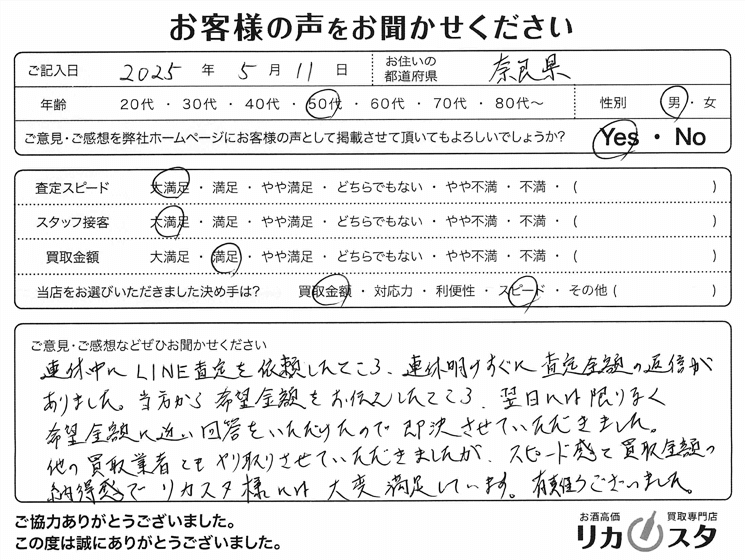 お客様の声をお聞かせください
ご記入日 2025 年 5 月 11 日 お住いの都道府県 奈良県
年齢 20代 ・ 30代 ・ 40代 ・ 50代 ・ 60代 ・ 70代 ・ 80代〜 性別 男 ・ 女
ご意見・ご感想を弊社ホームページにお客様の声として掲載させて頂いてもよろしいでしょうか? Yes ・ No
査定スピード 大満足 ・ 満足 ・ やや満足 ・ どちらでもない ・ やや不満 ・ 不満 ・ ( )
スタッフ接客 大満足 ・ 満足 ・ やや満足 ・ どちらでもない ・ やや不満 ・ 不満 ・ ( )
買取金額 大満足 ・ 満足 ・ やや満足 ・ どちらでもない ・ やや不満 ・ 不満 ・ ( )
当店をお選びいただきました決め手は? 買取金額 ・ 対応力 ・ 利便性 ・ スピード ・ その他 ( )
ご意見・ご感想などぜひお聞かせください
連休中にLINE査定を依頼したところ、連休明けすぐに査定金額の返信が
ありました。当方から希望金額をお伝えしたところ、翌日には限りなく
希望金額に近い回答をいただけたので即決させていただきました。
他の買取業者ともやり取りさせていただきましたが、スピード感と買取金額の
納得感でリカスタ様には大変満足しています。有難うございました。
ご協力ありがとうございました。
この度は誠にありがとうございました。
お酒高価 買取専門店
リカスタ